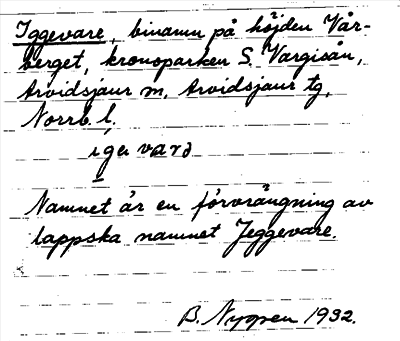 Iggevare, binamn på höjden Vår-
berget, kronoparken S. Vargisån,
Arvidsjaur sn, Arvidsjaur tg,
Norrb. l.
igevarə
Namnet är en förvrängning av
lappska namnet Jeggevare.
B. Nygren 1932.